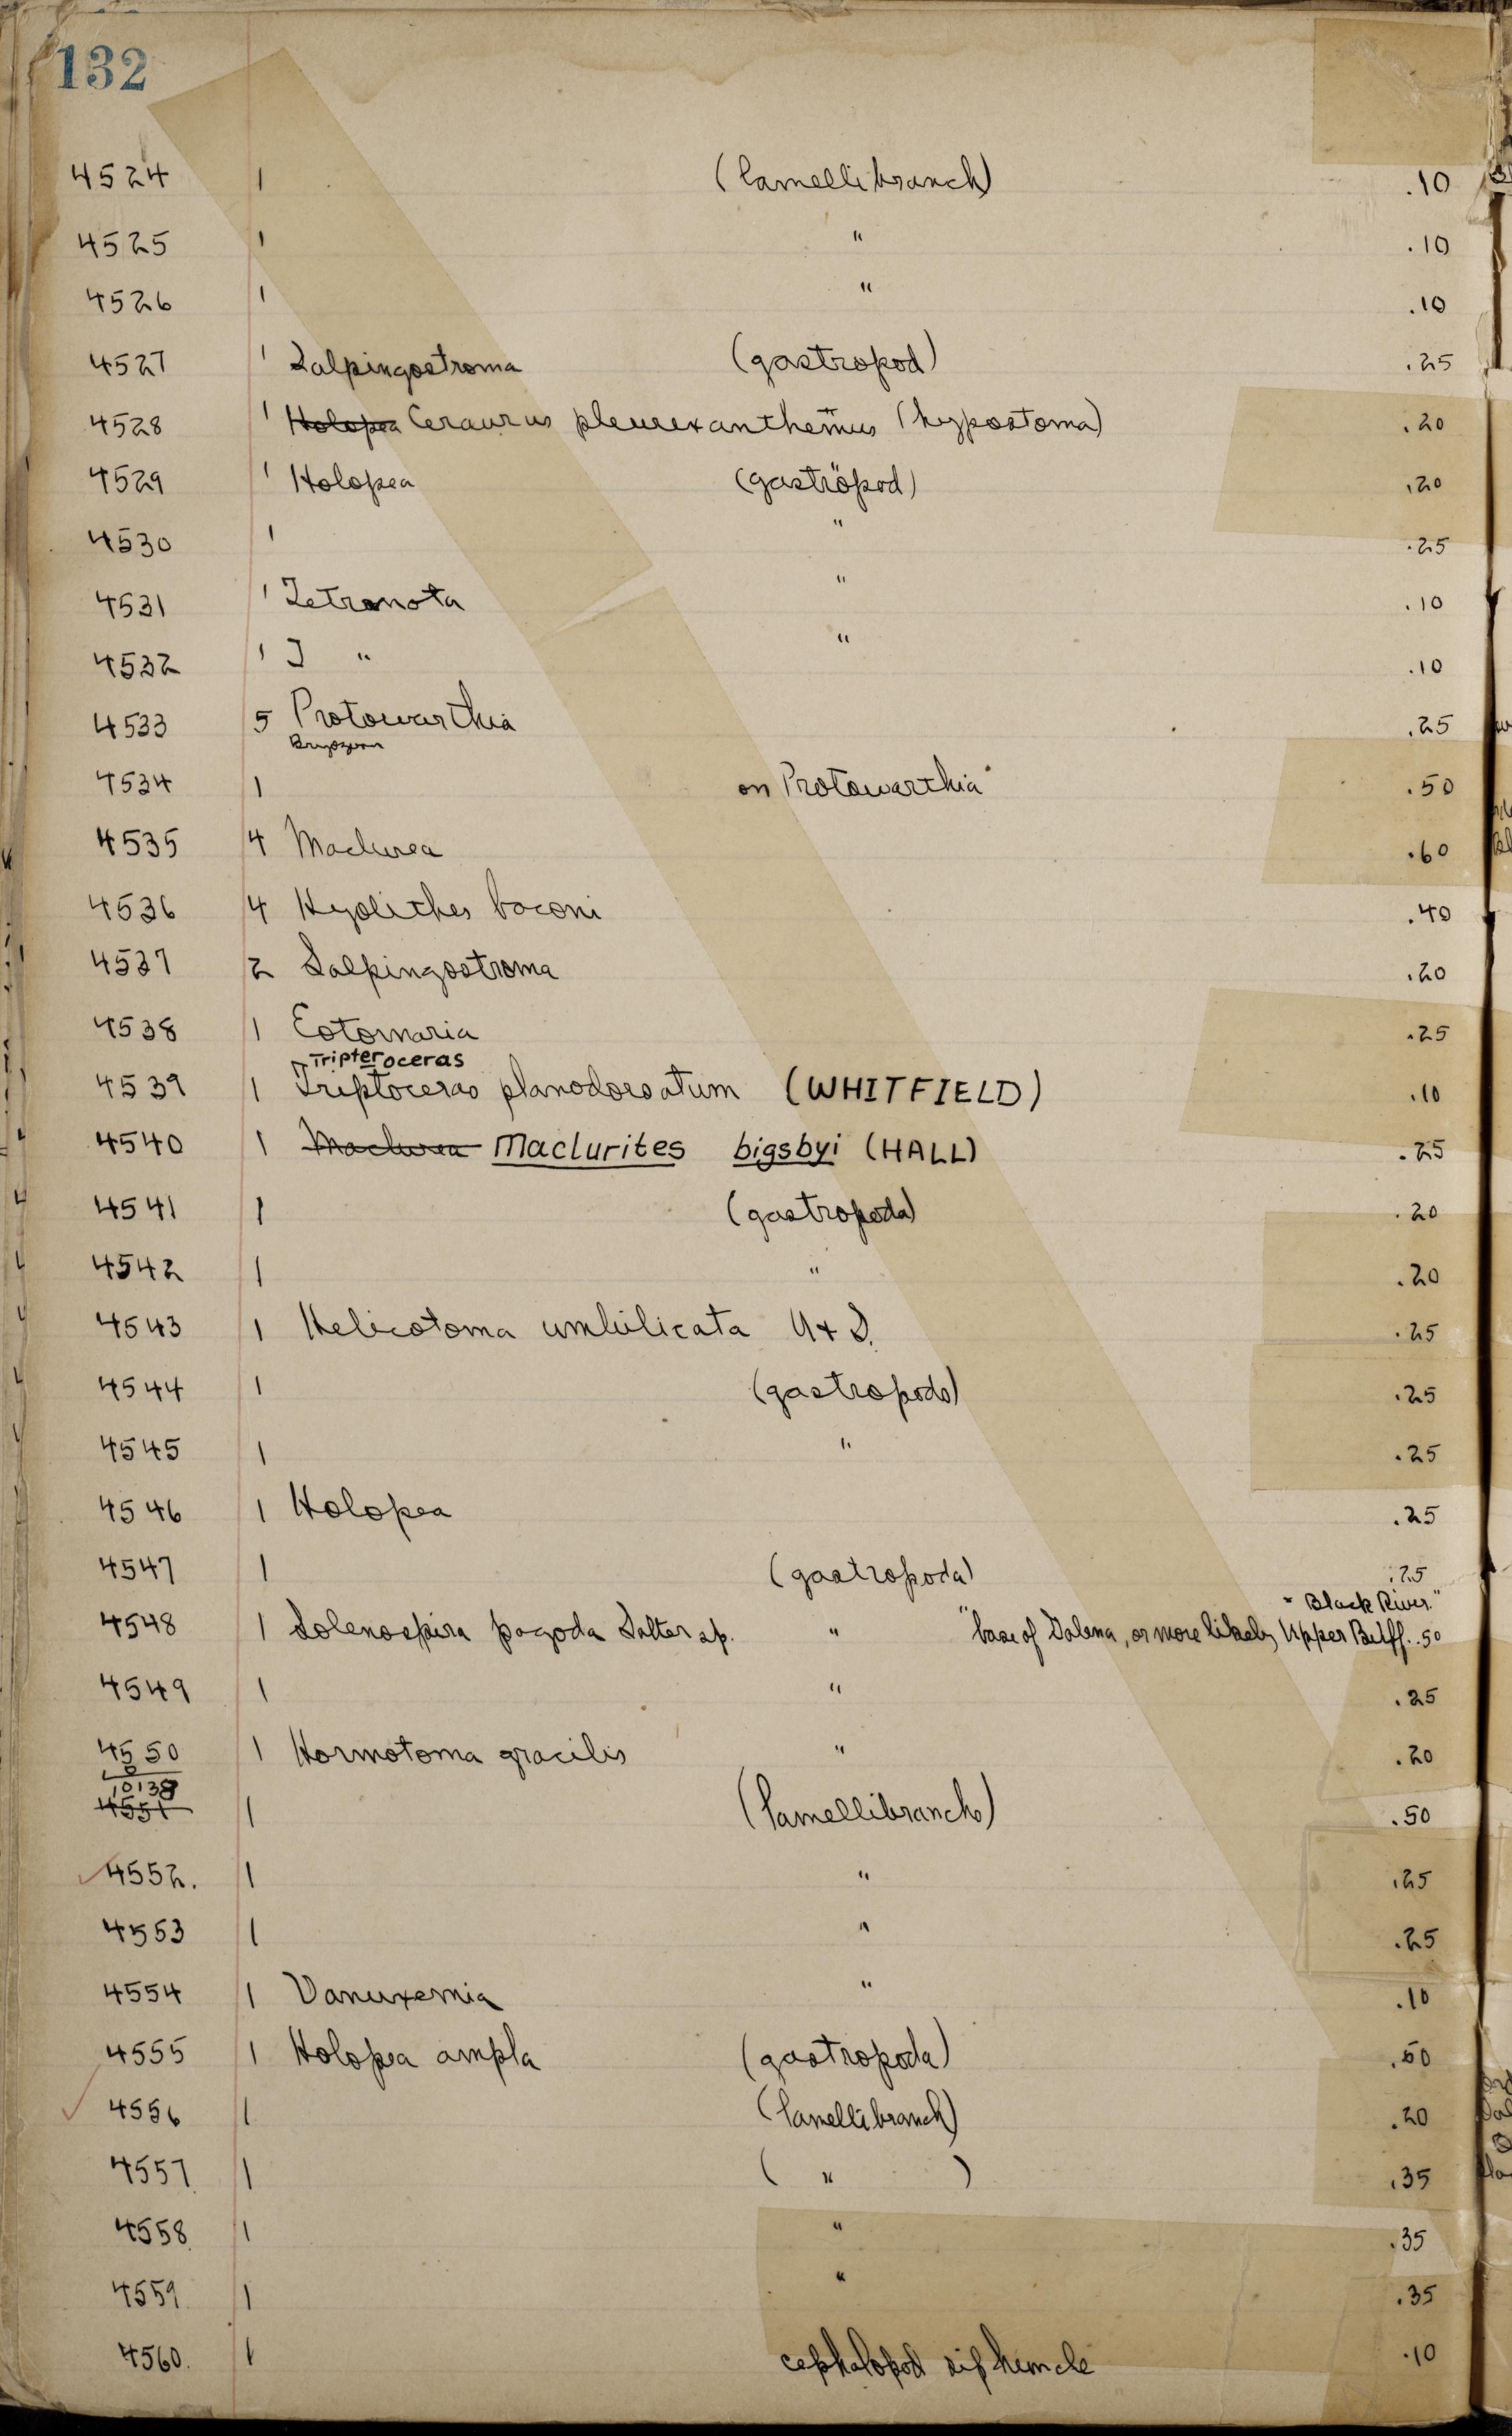 132
4524 1 (lamellibranch) .10
4525 1 " .10
4526 1 " .10
4527 1 Salpingostroma (gastropod) .25
4528 1 Holopea Ceraurus pleurexanthemus (hypostoma) .20
4529 1 Holopea (gastropod) .20
4530 1 " .25
4531 1 Tetranota " .10
4532 1 T " " .10
4533 5 Protowarthia .25
Bryozoan
4534 1 on Protowarthia .50
4535 4 Maclurea .60
4536 4 Hyolithes baconi .40
4537 2 Salpingostroma .20
4538 1 Eotomaria .25
Tripteroceras
4539 1 Triptoceras planodorsatum (WHITFIELD) .10
4540 1 Maclurea Maclurites bigsbyi (HALL) .25
4541 1 (gastropoda) .20
4542 1 " .20
4543 1 Helicotoma umbilicata U + S. .25
4544 1 (gastropods) .25
4545 1 " .25
4546 1 Holopea .25
4547 1 (gastropoda) .25
"Black River."
4548 1 Solenospira pagoda Salter sp. " "base of Galena, or more likely Upper Buff. .50
4549 1 " .25
4550 1 Hormotoma gracilis " .20
10138
4551 1 (lamellibranchs) .50
4552. 1 " .25
4553 1 " .25
4554 1 Vanuxemia " .10
4555 1 Holopea ampla (gastropoda) .50
4556 1 (lamellibranch) .20
4557 1 ( " ) .35
4558 1 " .35
4559 1 " .35
4560. 1 cephalopod siphuncle .10